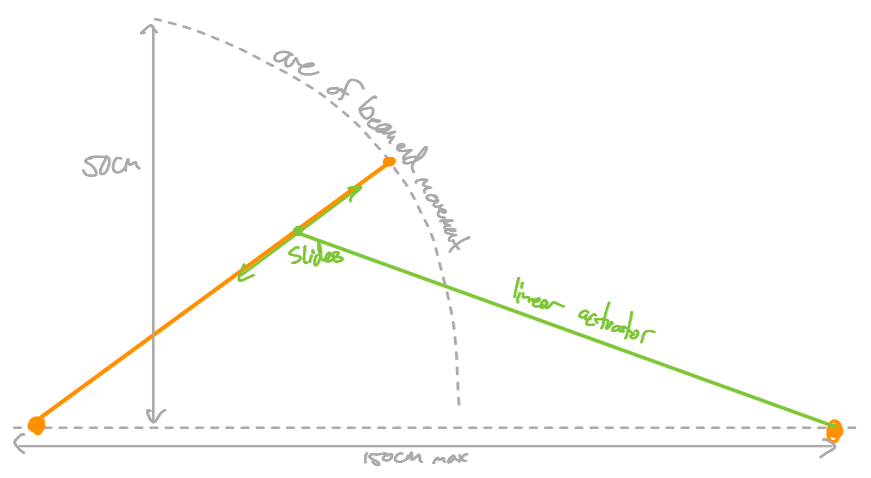 arc of beam end movement
50cm
slides
linear actuator
150cm max